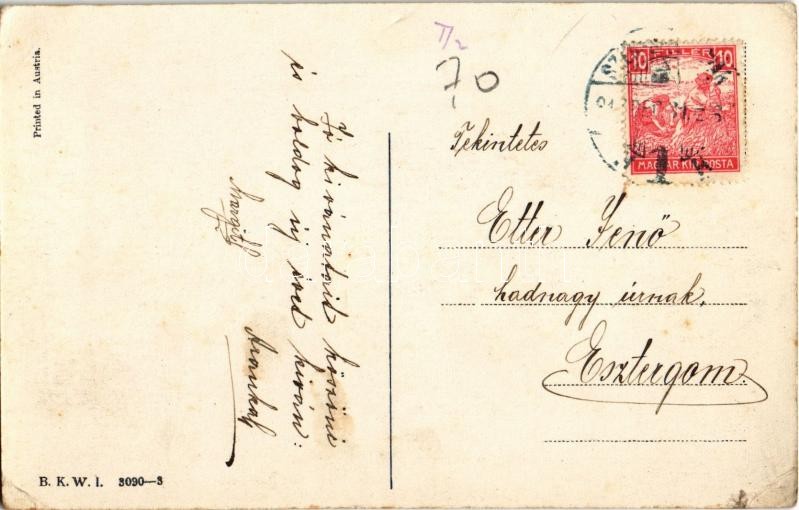 Printed in Austria.
T/2
70
10 FILLÉR 10
MAGYAR KIR. POSTA
Tekintetes
Etter Jenő
hadnagy úrnak.
Esztergom.
Jó kivánatait köszöni
és boldog új évet kiván:
Aranka
Margit
B. K. W. I. 3090—3